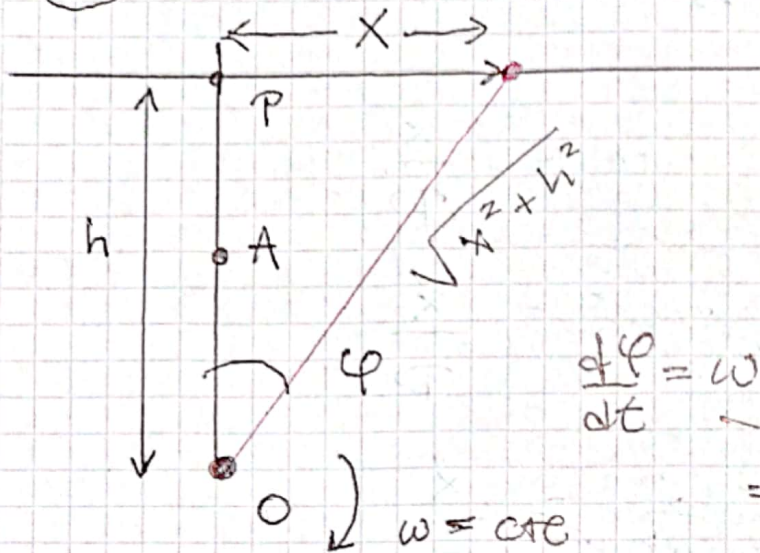 X
P
h
A
√x² + h²
φ
dφ/dt = ω
=
O
ω = cte